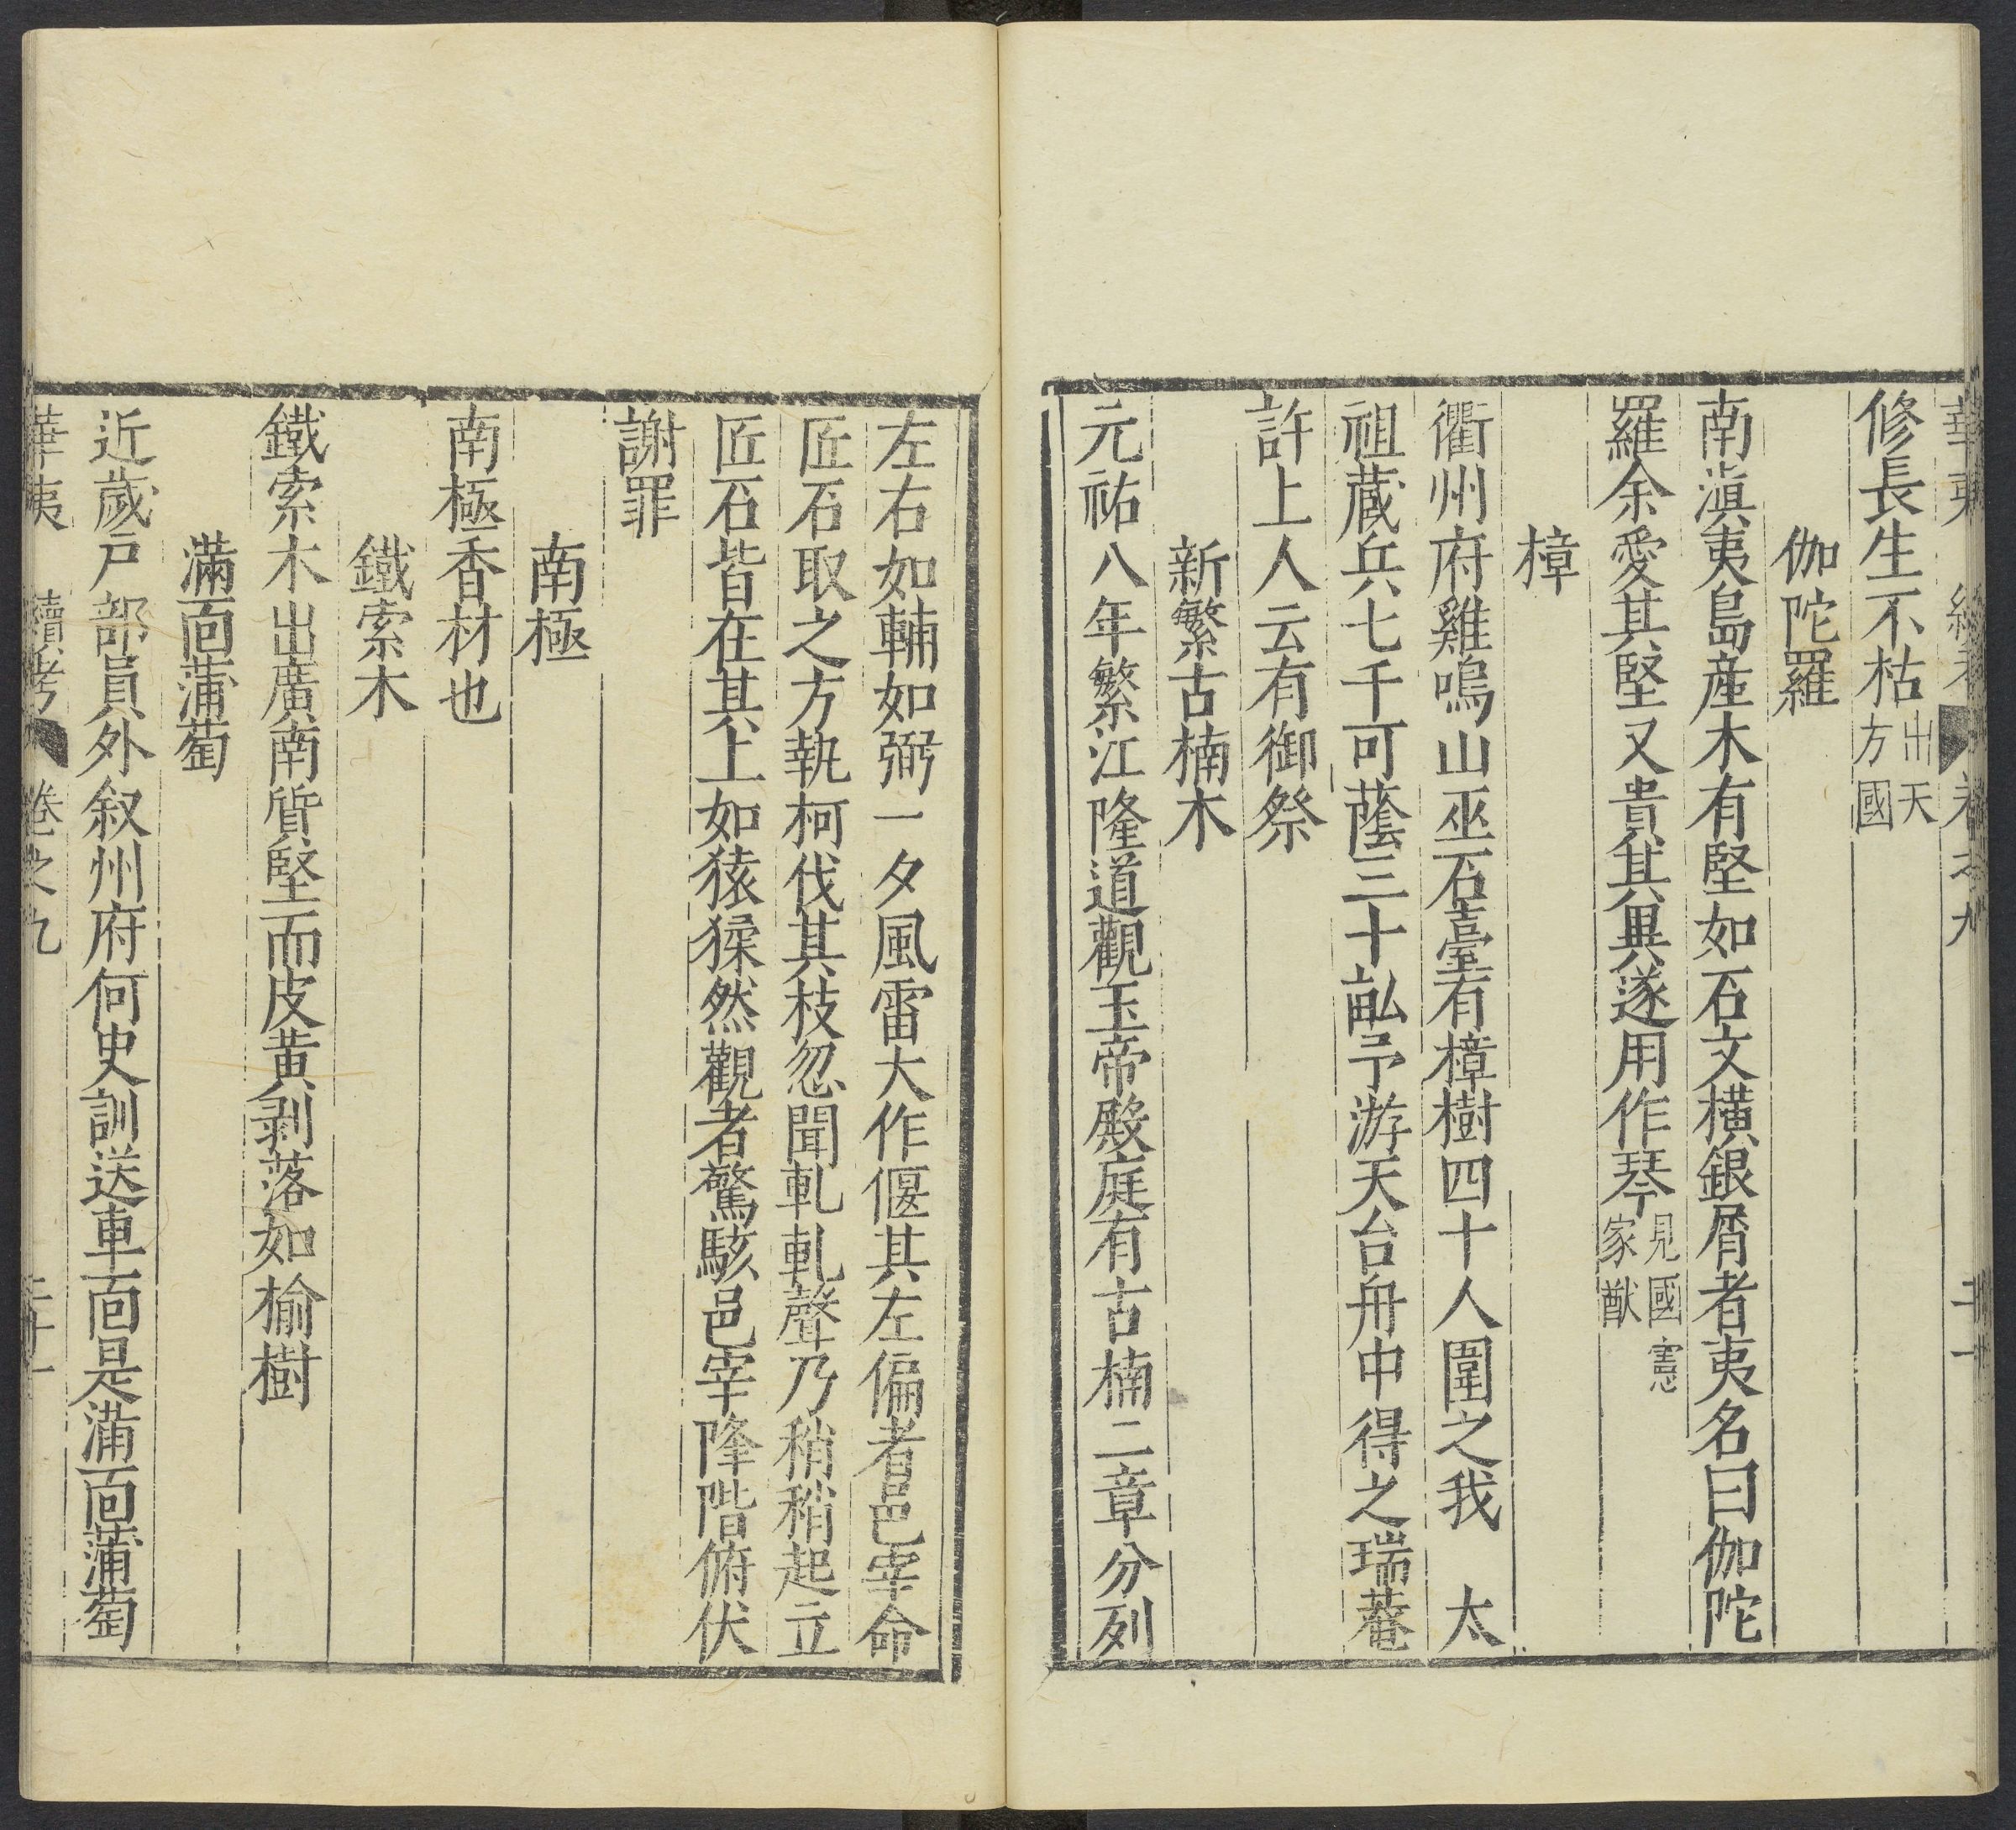 修長生不枯出天方國
伽陀羅
南滇夷島產木有堅如石文橫銀屑者夷名曰伽陀
羅余愛其堅又貴其異遂用作琴見國憲家猷
樟
衢州府雞鳴山巫石臺有樟樹四十人圍之我 太
祖蔵兵七千可蔭三十畆予游天台舟中得之瑞菴
許上人云有御祭
新繁古楠木
元祐八年繁江隆道觀玉帝殿庭有古楠二章分列
左右如輔如弼一夕風雷大作偃其左偏者邑宰命
匠石取之方執柯伐其枝忽聞軋軋聲乃稍稍起立
匠石皆在其上如猿猱然觀者驚駭邑宰降階俯伏
謝罪
南極
南極香材也
鐵索木
鐵索木出廣南質堅而皮黃剥落如榆樹
滿面蒲萄
近歲戶部員外叙州府何史訓送車面是滿面蒲萄
華夷 續考 卷之九 二十一